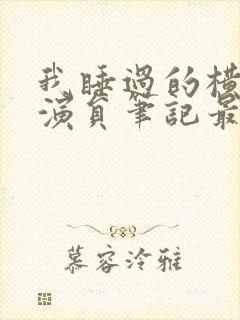 我睡過的橫
演員筆記最
慕容泠雅